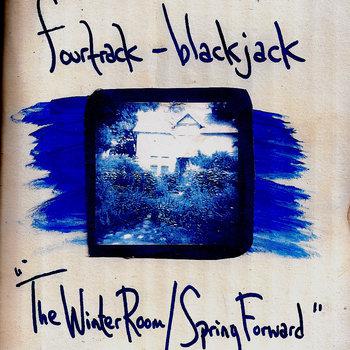 fourtrack - blackjack
"The Winter Room / Spring Forward"